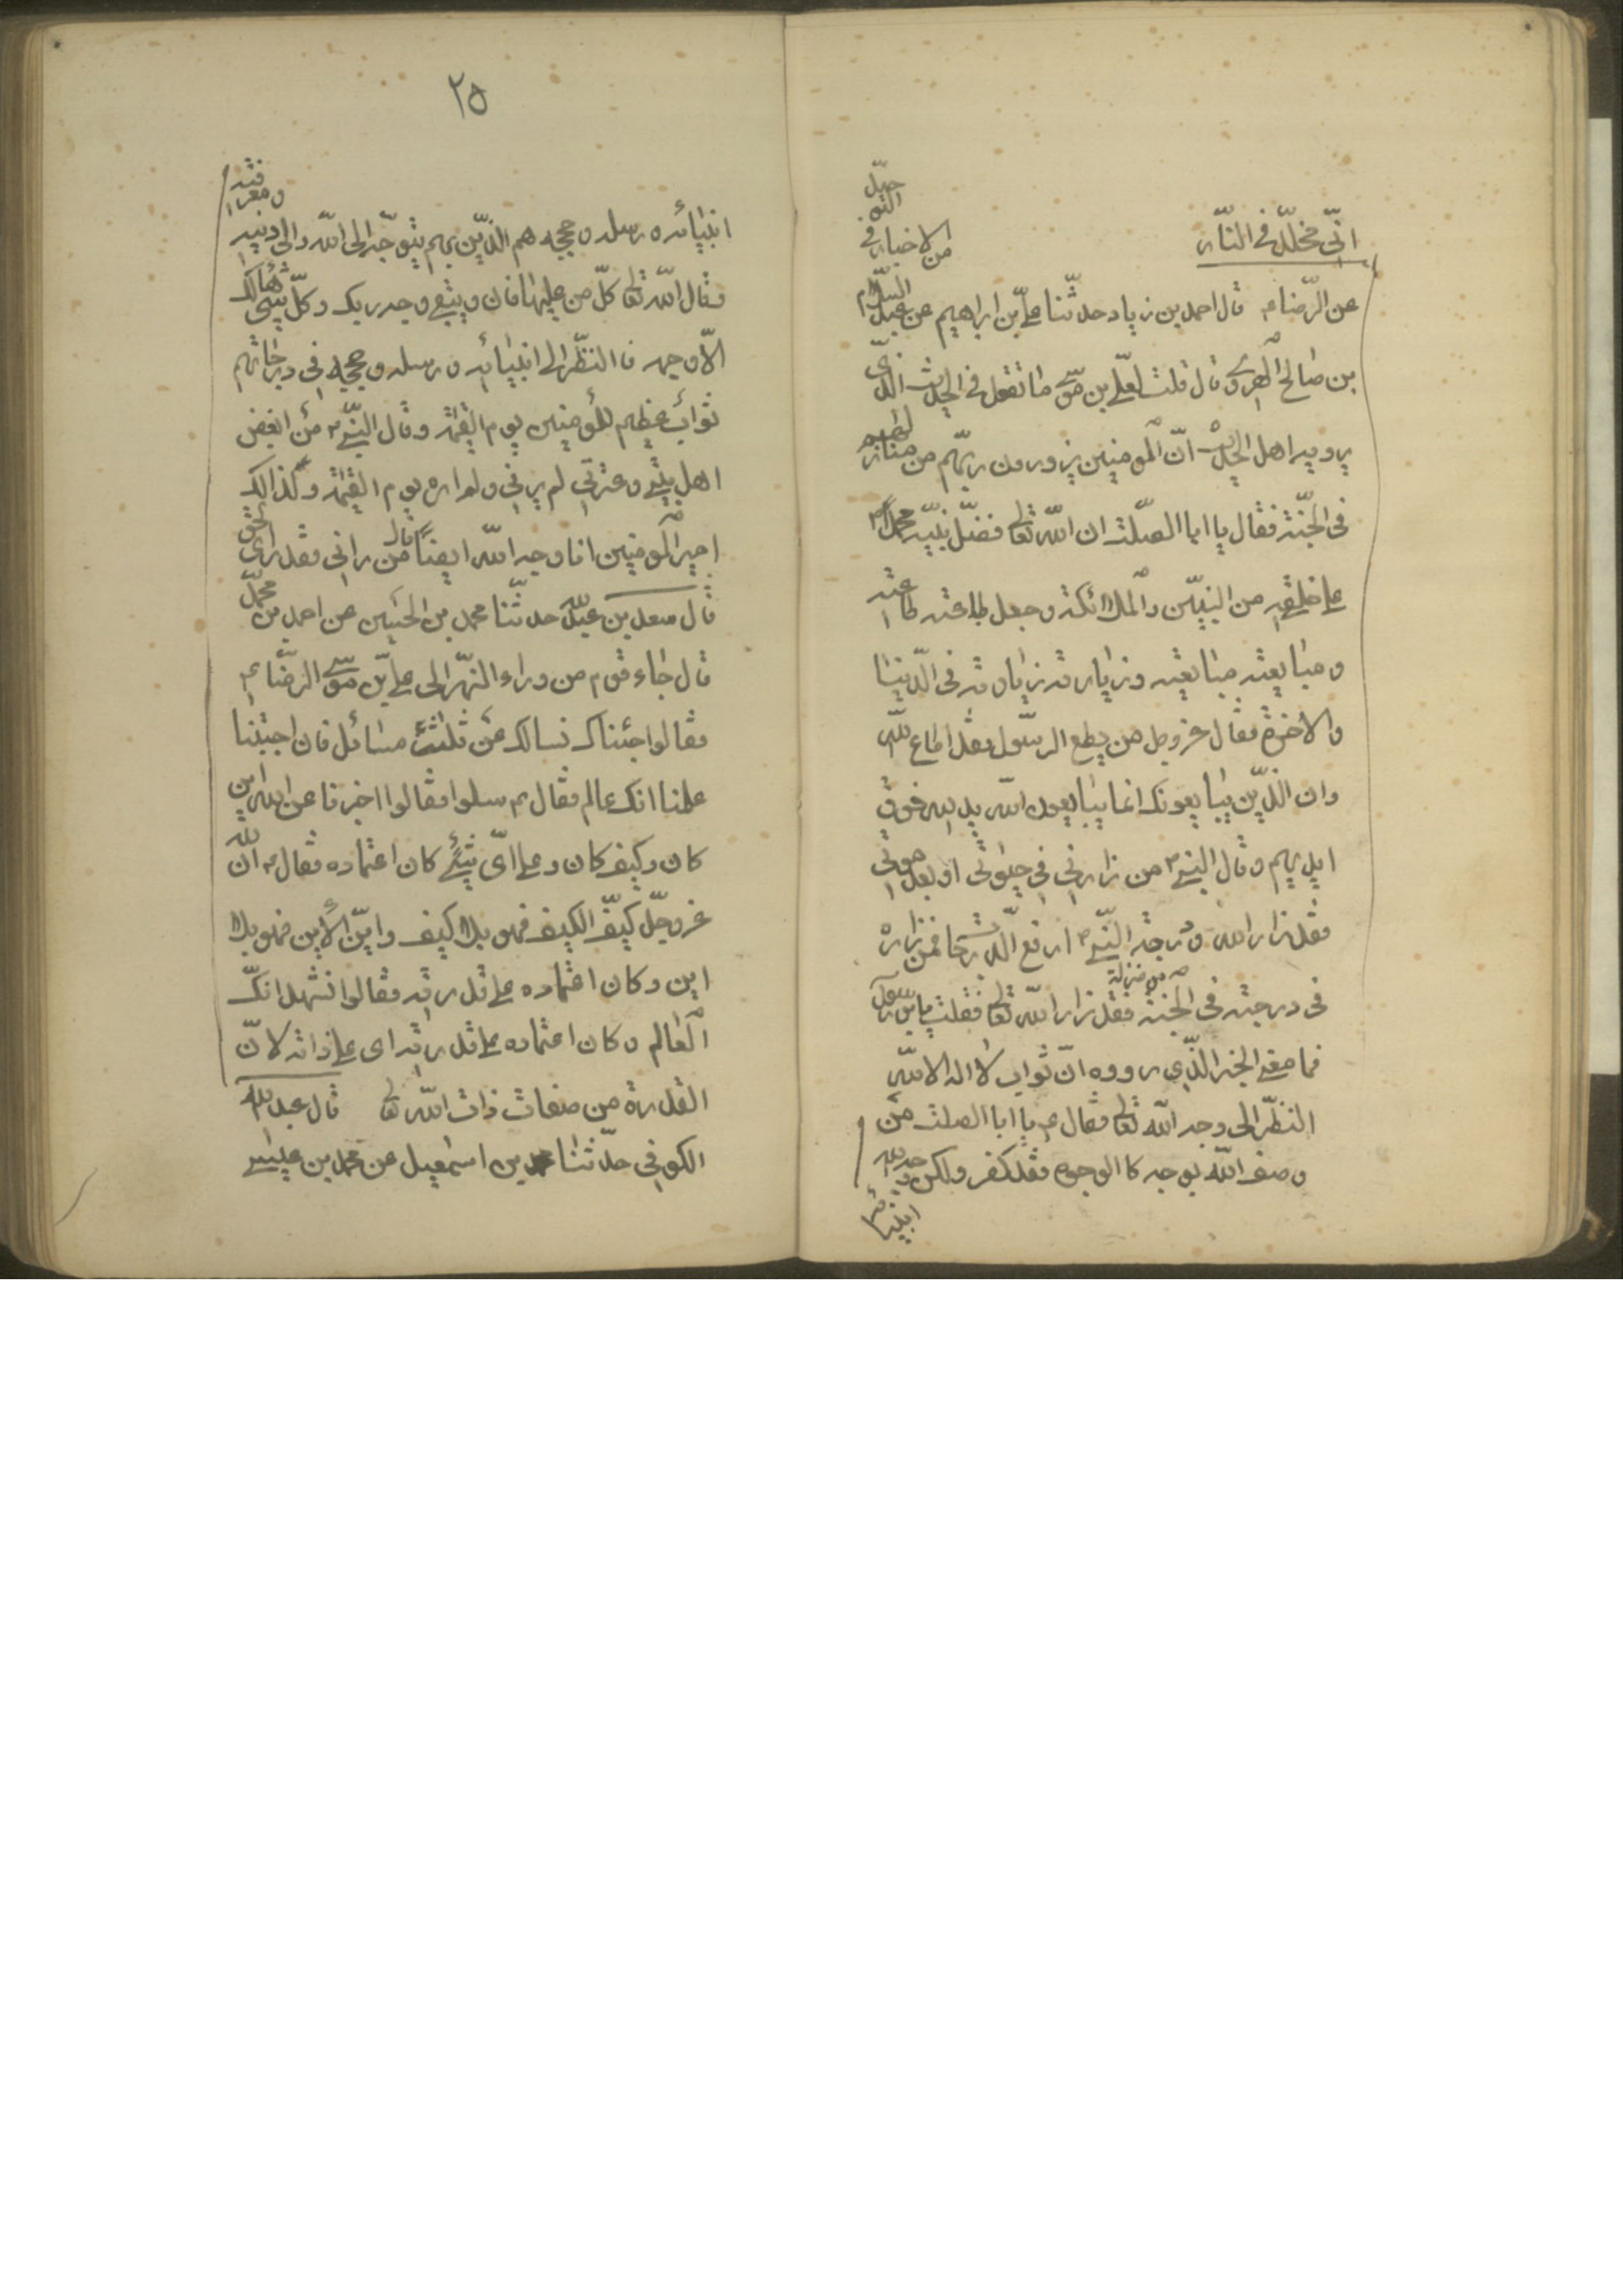 انّى مخلّد فى النّار
من الاخبار فى التوحيد
عن الرّضا ع قال احمد بن زياد حدثّنا علىّ بن ابراهيم عن عبد السلام
بن صالح الهروى قال قلت لعلىّ بن موسى ما تقول فى الحديث الّذى
يرويه اهل الحديث انّ المومنين يزورون ربّهم من منازلهم
فى الجنّة فقال يا ابا الصّلت ان اللّه تعالى فضّل نبيّه محمدا ص
على خلقه من النبيّين والملائكة وجعل طاعته طاعته
ومبايعته مبايعته وزيارته زيارته فى الدّنيا
والاخرة فقال عزوجل من يطع الرسول فقد اطاع اللّه
وان الّذين يبايعونك انما يبايعون اللّه يد اللّه فوق
ايديهم وقال النبى ص من زارنى فى حيوتى او بعد موتى
فقد زار اللّه ودرجة النّبى ص ارفع الدّرجات فمن زاره
فى درجته فى الجنة من منزله فقد زار اللّه تعالى فقلت يابن رسول
فما معنى الخبر الّذى رووه انّ ثواب لا اله الا اللّه
النظر الى وجه اللّه تعالى فقال ع يا ابا الصلت من
وصف اللّه بوجه كالوجوه فقد كفر ولكن وجه اللّه
انبيائه
٢٥
انبيائه ورسله وحججه هم الّذين بهم يتوجّه الى اللّه والى دينه ومعرفته
وقال اللّه تعالى كلّ من عليها فان ويبقى وجه ربك وكلّ شئ هالك
الّا وجهه فالنظر الى انبيائه ورسله وحججه فى درجاتهم
ثواب عظيم للمؤمنين يوم القيمة وقال النبى ص من ابغض
اهل بيتى وعترتى لم يرنى ولم اره يوم القيمة وكذالك
امير المومنين انا وجه اللّه ايضا قال من رانى فقد راى الحق
قال سعد بن عبد اللّه حدثّنا محمد بن الحسين عن احمد بن محمّد
قال جاء قوم من وراء النّهر الى علىّ بن موسى الرّضا ع
فقالوا جئناك نسالك عن ثلث مسائل فان اجبتنا
علمنا انك عالم فقال ع سلوا فقالوا اخبرنا عن اللّه اين
كان وكيف كان وعلى اىّ شئ كان اعتماده فقال ع ان اللّه
عزوجلّ كيّف الكيف فهو بلا كيف وايّن الاين فهو بلا
اين وكان اعتماده على قدرته فقالوا نشهد انكّ
العالم وكان اعتماده على قدرته اى على ذاته لانّ
القدرة من صفات ذات اللّه تعالى قال عبد اللّه
الكوفى حدّثنا محمد بن اسمعيل عن محمد بن عيسى